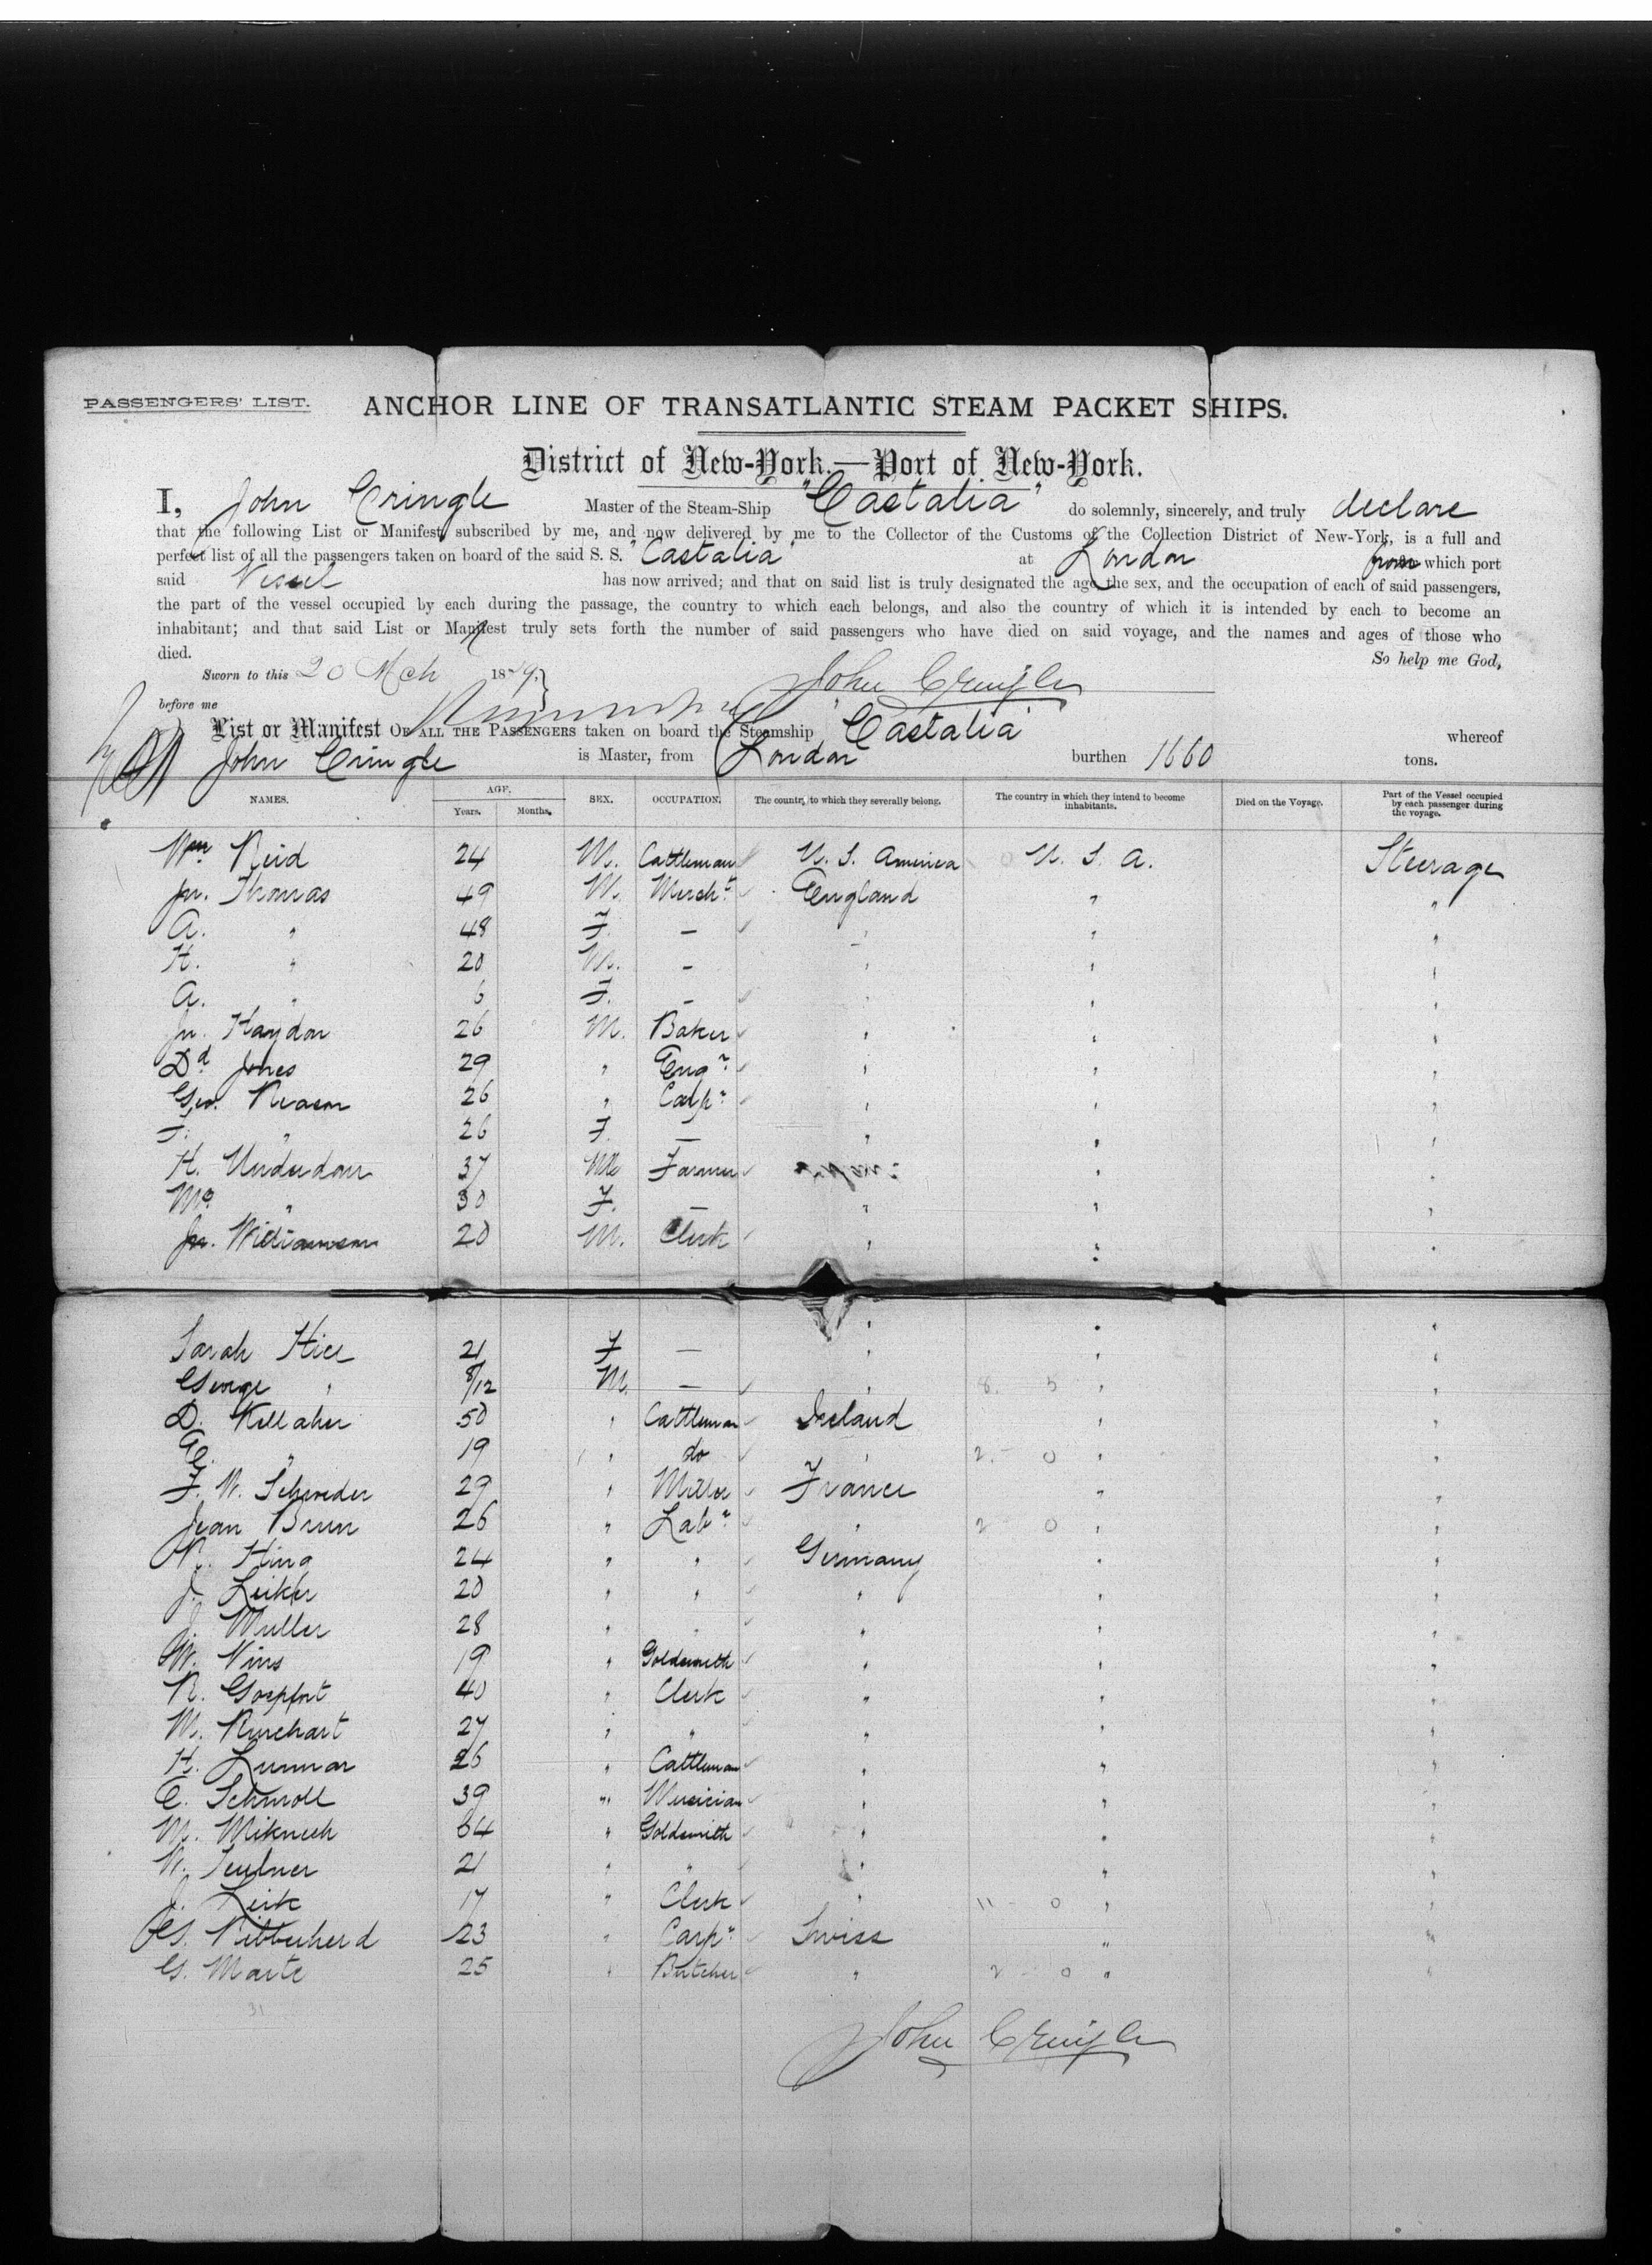 PASSENGERS' LIST.
ANCHOR LINE OF TRANSATLANTIC STEAM PACKET SHIPS.
District of New-York.—Port of New-York.
I, John Cringle Master of the Steam-Ship "Castalia" do solemnly, sincerely, and truly declare
that the following List or Manifest, subscribed by me, and now delivered by me to the Collector of the Customs of the Collection District of New-York, is a full and
perfect list of all the passengers taken on board of the said S. S. "Castalia" at London from which port
said Vessel has now arrived; and that on said list is truly designated the age, the sex, and the occupation of each of said passengers,
the part of the vessel occupied by each during the passage, the country to which each belongs, and also the country of which it is intended by each to become an
inhabitant; and that said List or Manifest truly sets forth the number of said passengers who have died on said voyage, and the names and ages of those who
died. So help me God,
Sworn to this 20 Mch 1879, John Cringle
before me
List or Manifest OF ALL THE PASSENGERS taken on board the Steamship "Castalia" whereof
John Cringle is Master, from London burthen 1660 tons.
NAMES. AGE. Years. Months. SEX. OCCUPATION. The country to which they severally belong. The country in which they intend to become inhabitants. Died on the Voyage. Part of the Vessel occupied by each passenger during the voyage.
Wm Reid 24 M. Cattleman U. S. America U. S. A. Steerage
Jn. Thomas 49 M. Mercht England " "
A. " 48 F. — " " "
H. " 20 M. — " " "
A. " 6 F. — " " "
Jn. Haydon 26 M. Baker " " "
Dd Jones 29 " Engr " " "
Geo. Reason 26 " Carpr " " "
F. " 26 F. — " " "
H. Underdown 37 M Farmer " "
Mrs " 30 F. — " " "
Jn. Williamson 20 M. Clerk " " "
Sarah Hice 21 F — " " "
George " 8/12 M. — " " "
D. Kellaher 50 " Cattleman Ireland " "
" 19 " do " " "
F. W. Schroder 29 " Miller France " "
Jean Brun 26 " Labr " " "
24 " " Germany " "
J. 20 " " " " "
J. Muller 28 " " " " "
W. Vins 19 " Goldsmith " " "
R. Goepfort 40 " Clerk " " "
M. Rinehart 27 " " " " "
H. 26 " Cattleman " " "
C. Schmoll 39 " Musician " " "
M. 64 " Goldsmith " " "
21 " " " " "
J. 17 " Clerk " " "
23 " Carpr Swiss " "
G. Marte 25 " Butcher " " "
31
John Cringle